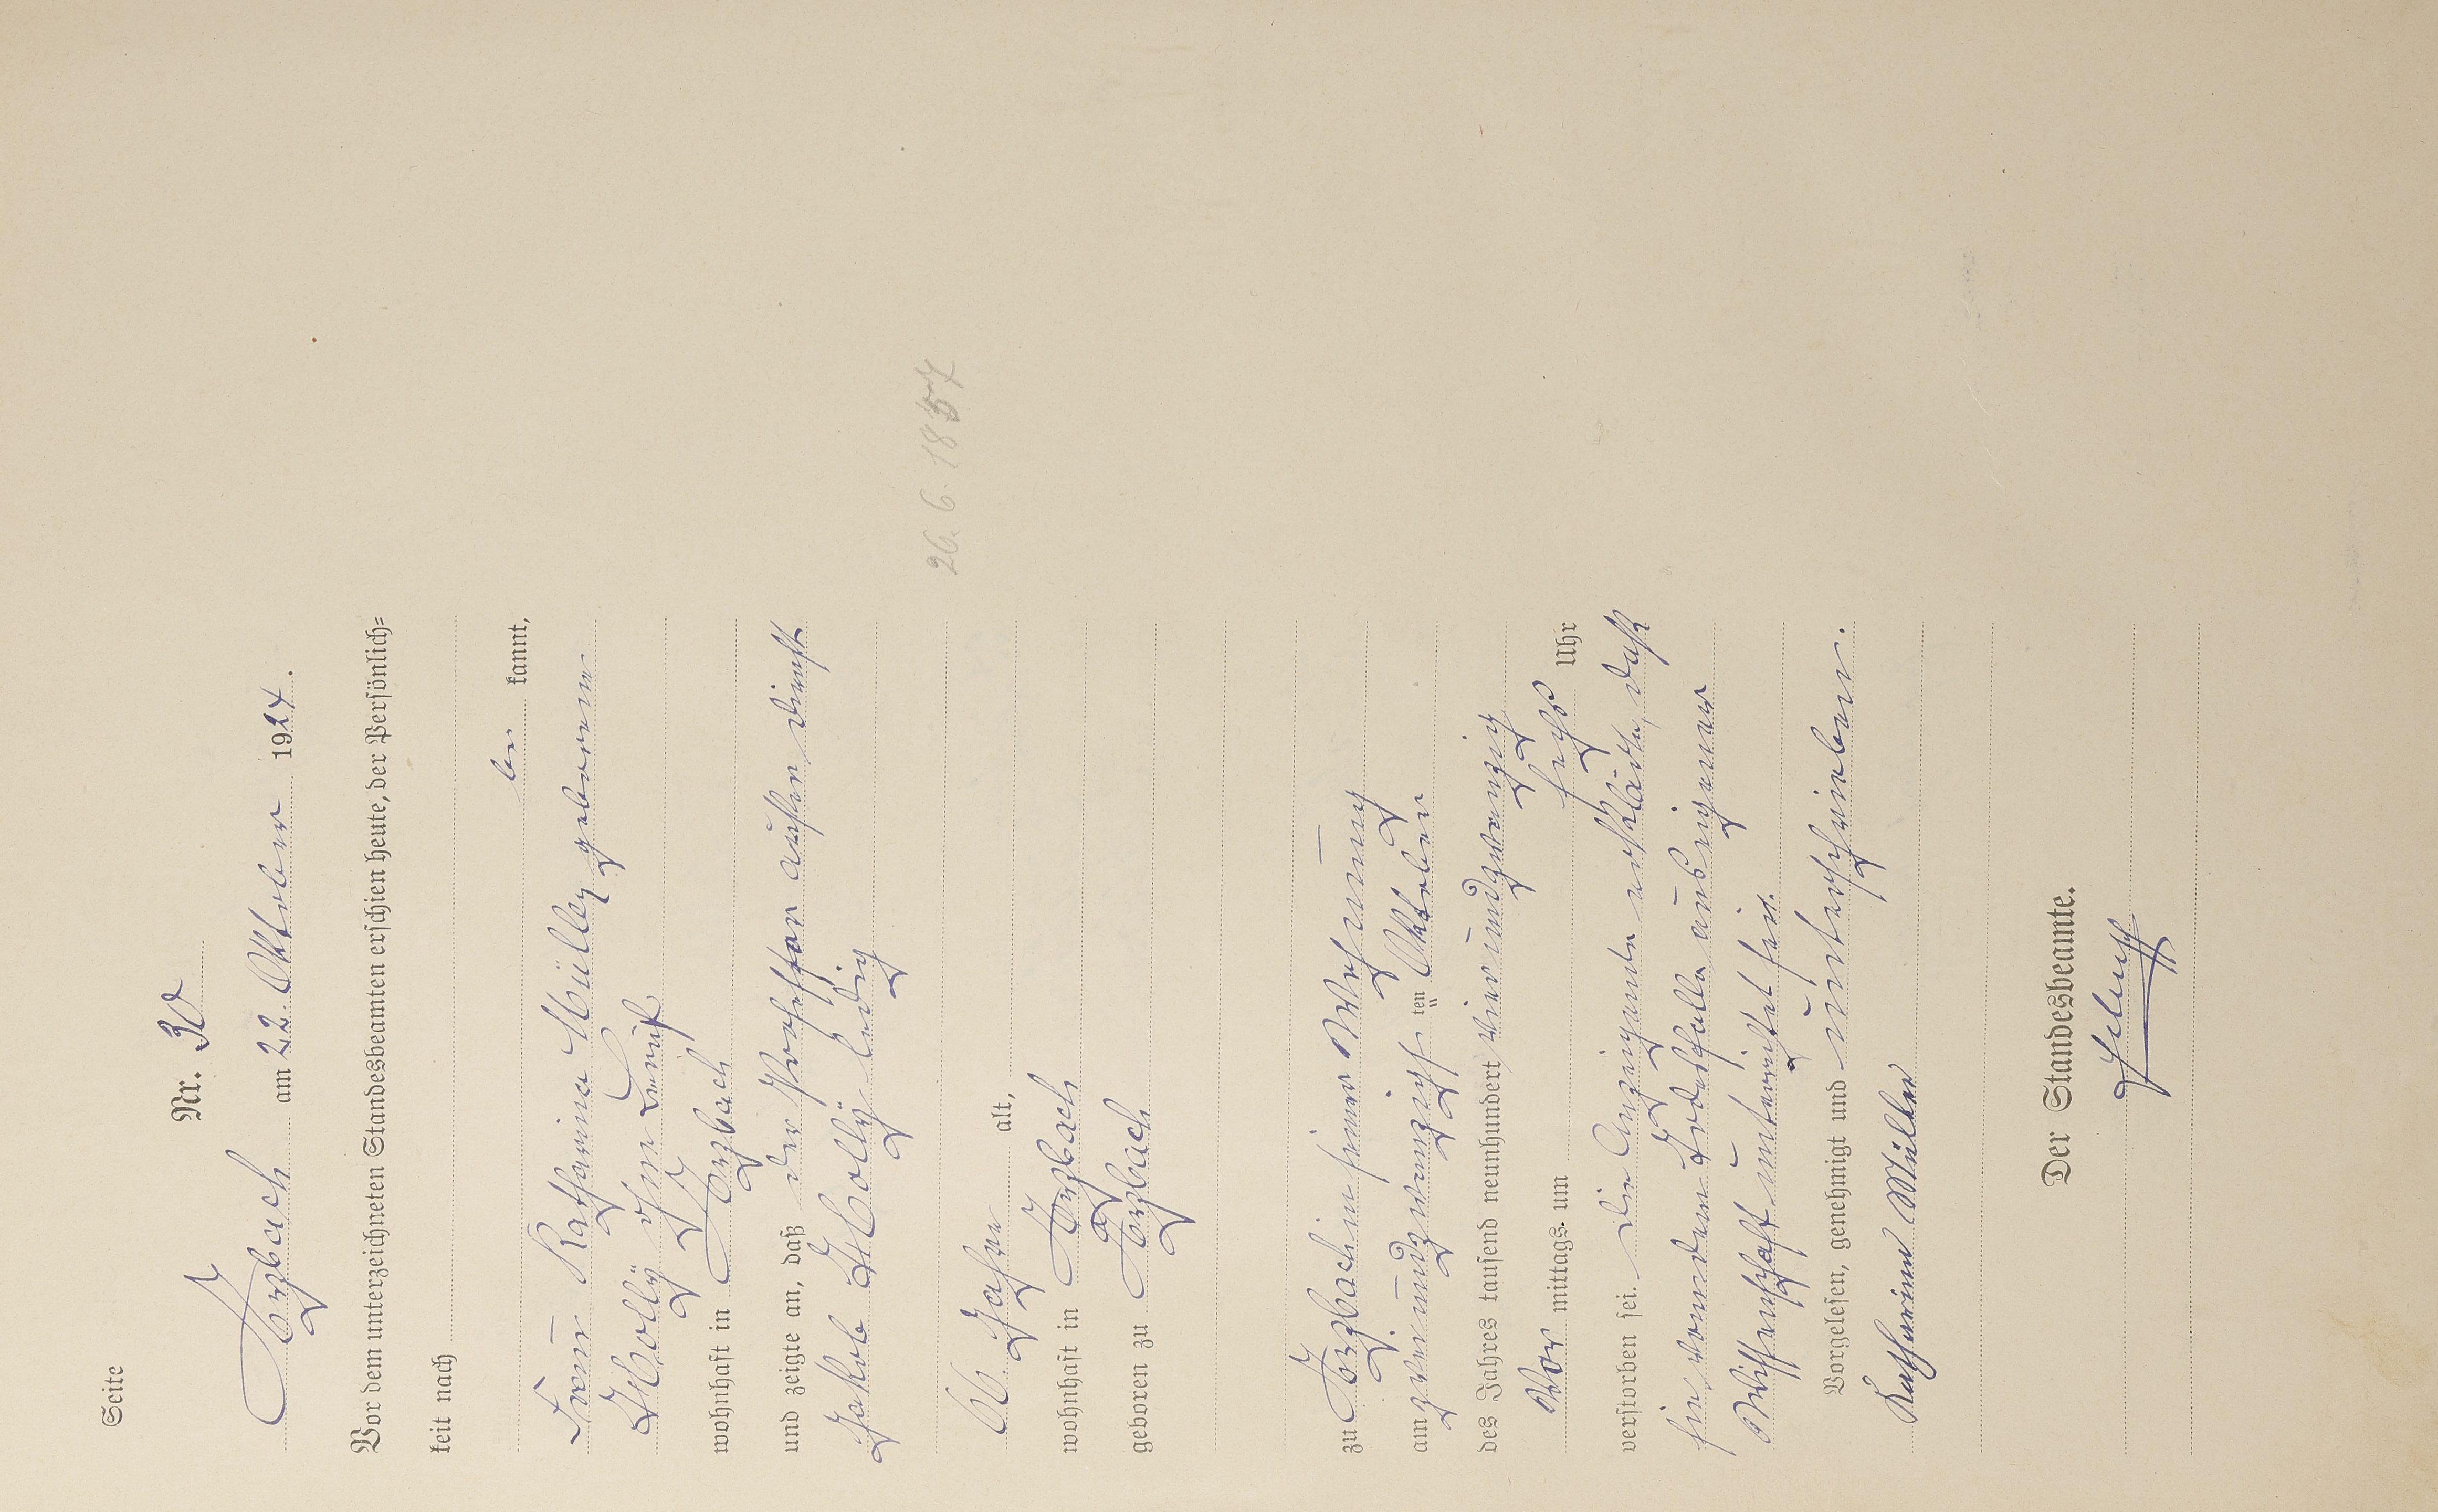 Seite
Nr. 30
Forbach am 22. Oktober 1924.
Vor dem unterzeichneten Standesbeamten erschien heute, der Persönlich=
keit nach
be kannt,
Frau Katharina Müller geborene
ohne Beruf
wohnhaft in
und zeigte an, daß der Professor außer Dienst
Jakob ledig
66 Jahre alt,
wohnhaft in
geboren zu
zu in seiner Wohnung
am zweiundzwanzigsten Oktober
des Jahres tausend neunhundert vierundzwanzig
Vor mittags um sechs Uhr
verstorben sei. Die Anzeigende erklärte, daß
sie von dem Todesfalle aus eigener
Wissenschaft unterrichtet sei.
Vorgelesen, genehmigt und unterschrieben.
Katharina Müller
Der Standesbeamte.
26. 6. 1857